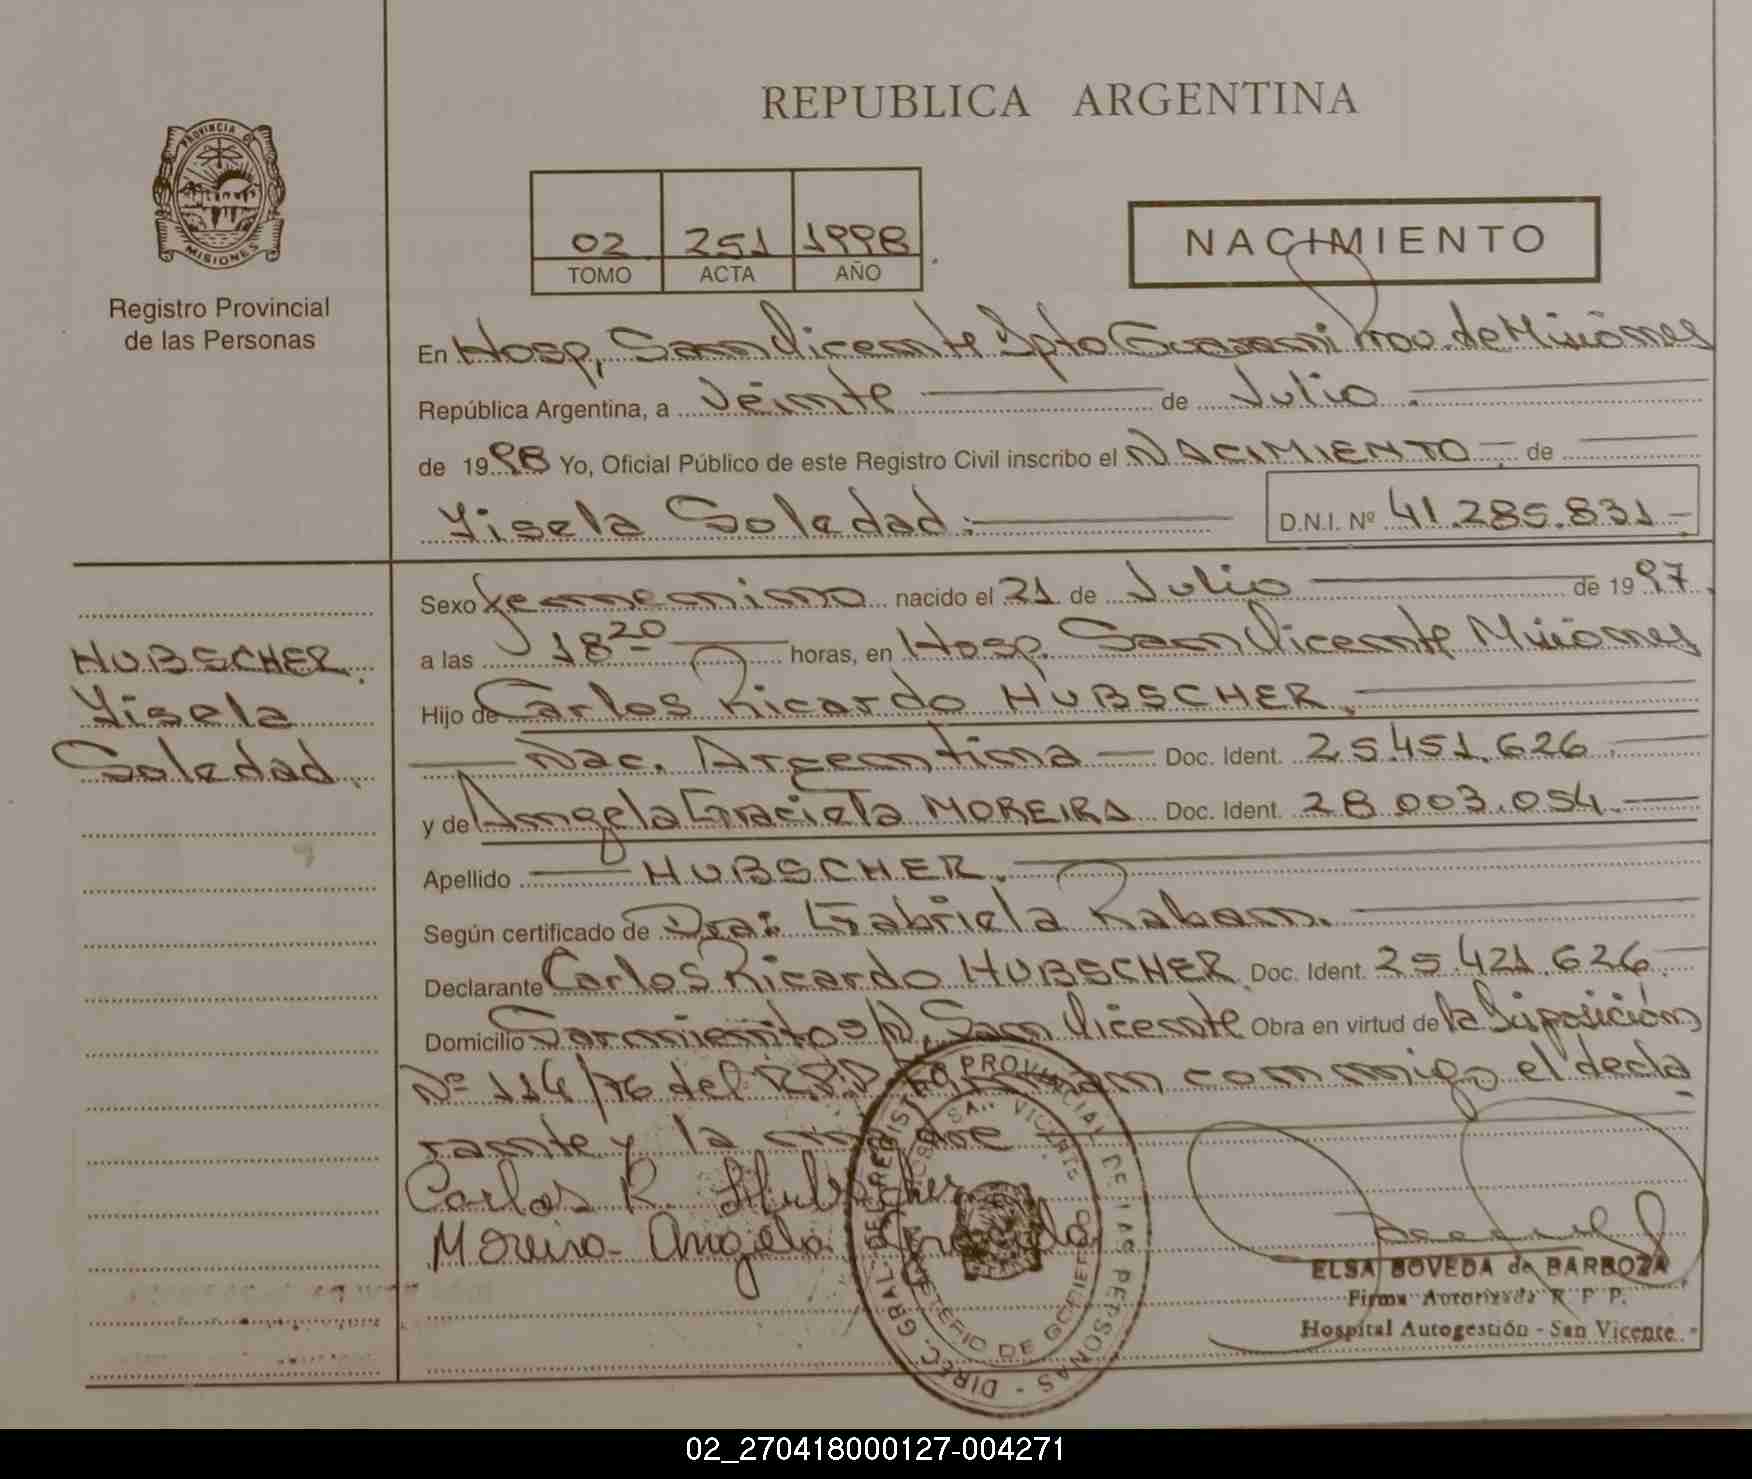 REPUBLICA ARGENTINA
PROVINCIA DE
MISIONES
Registro Provincial
de las Personas
02 251 1998
TOMO ACTA AÑO
NACIMIENTO
En Hosp. San Vicente Dpto Guaraní Prov. de Misiones
República Argentina, a Veinte de Julio
de 1998 Yo, Oficial Público de este Registro Civil inscribo el NACIMIENTO de
Yisela Soledad. D.N.I. Nº 41.285.831
HUBSCHER
Yisela
Soledad
Sexo femenino nacido el 21 de Julio de 1997
a las 18 20 horas, en Hosp. San Vicente Misiones
Hijo de Carlos Ricardo HUBSCHER.
Nac. Argentina Doc. Ident. 25.451.626
y de Angela Graciela MOREIRA Doc. Ident. 28.003.054
Apellido HUBSCHER.
Según certificado de Dra: Gabriela Raban.
Declarante Carlos Ricardo HUBSCHER Doc. Ident. 25.421.626
Domicilio Sarmiento s/N, San Vicente Obra en virtud de la Disposición
Nº 114/76 del R.P.P. Firman conmigo el decla
rante y la madre
Carlos R. Hubscher
Moreira Angela Graciela
DIREC. GRAL. DEL REGISTRO PROVINCIAL DE LAS PERSONAS
SAN VICENTE
DE GOBIERNO
ELSA BOVEDA de BARBOZA
Firma Autorizada R P P.
Hospital Autogestión - San Vicente
02_270418000127-004271